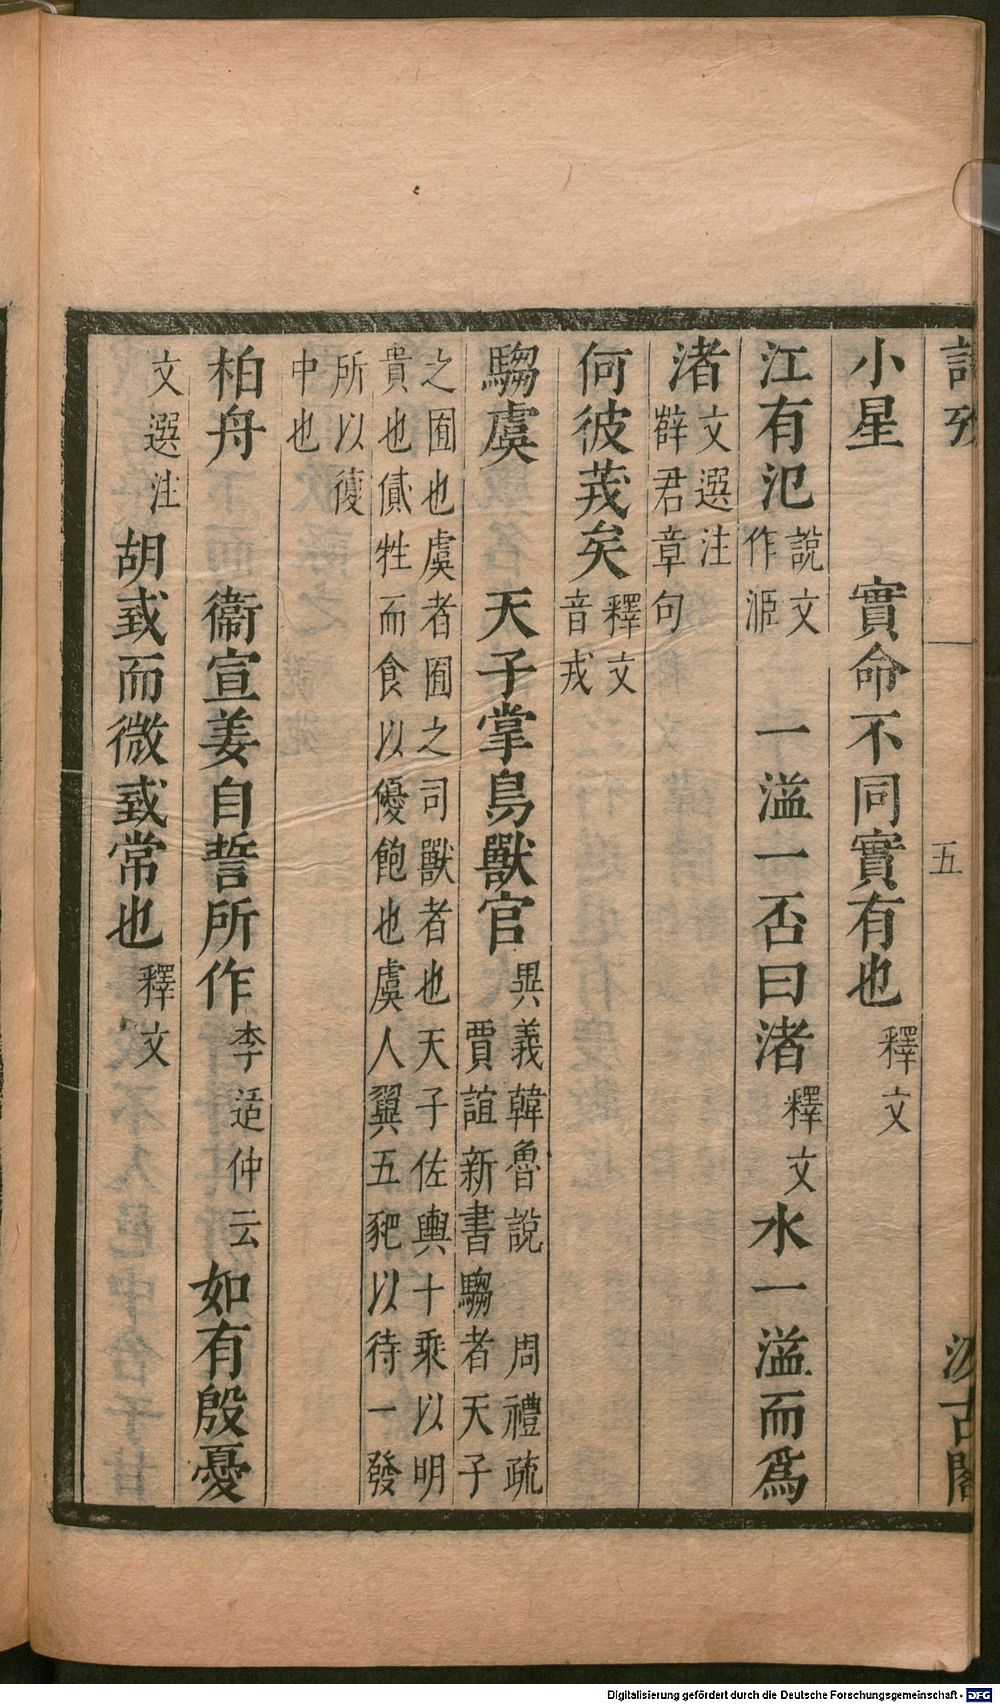 詩攷
五
汲古閣
小星　實命不同實有也釋文
江有汜說文作洍　一溢一否曰渚釋文水一溢而爲
渚文選注薛君章句
何彼茙矣釋文音戎
騶虞　天子掌鳥獸官異義韓魯說　周禮疏賈誼新書騶者天子
之囿也虞者囿之司獸者也天子佐輿十乘以明
貴也貳牲而食以優飽也虞人翼五豝以待一發
所以復
中也
柏舟　衞宣姜自誓所作李迃仲云如有殷憂
文選注胡䟫而微䟫常也釋文
Digitalisierung gefördert durch die Deutsche Forschungsgemeinschaft - DFG